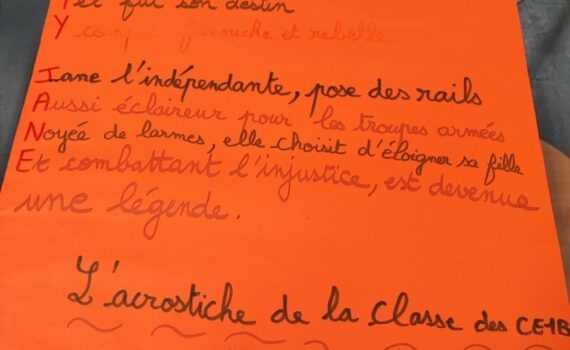 Tel fut son destin
Y compris farouche et rebelle
Jane l'indépendante, pose des rails
Aussi éclaireur pour les troupes armées
Noyée de larmes, elle choisit d'éloigner sa fille
Et combattant l'injustice, est devenue
une légende.
L'acrostiche de la classe des CE1B